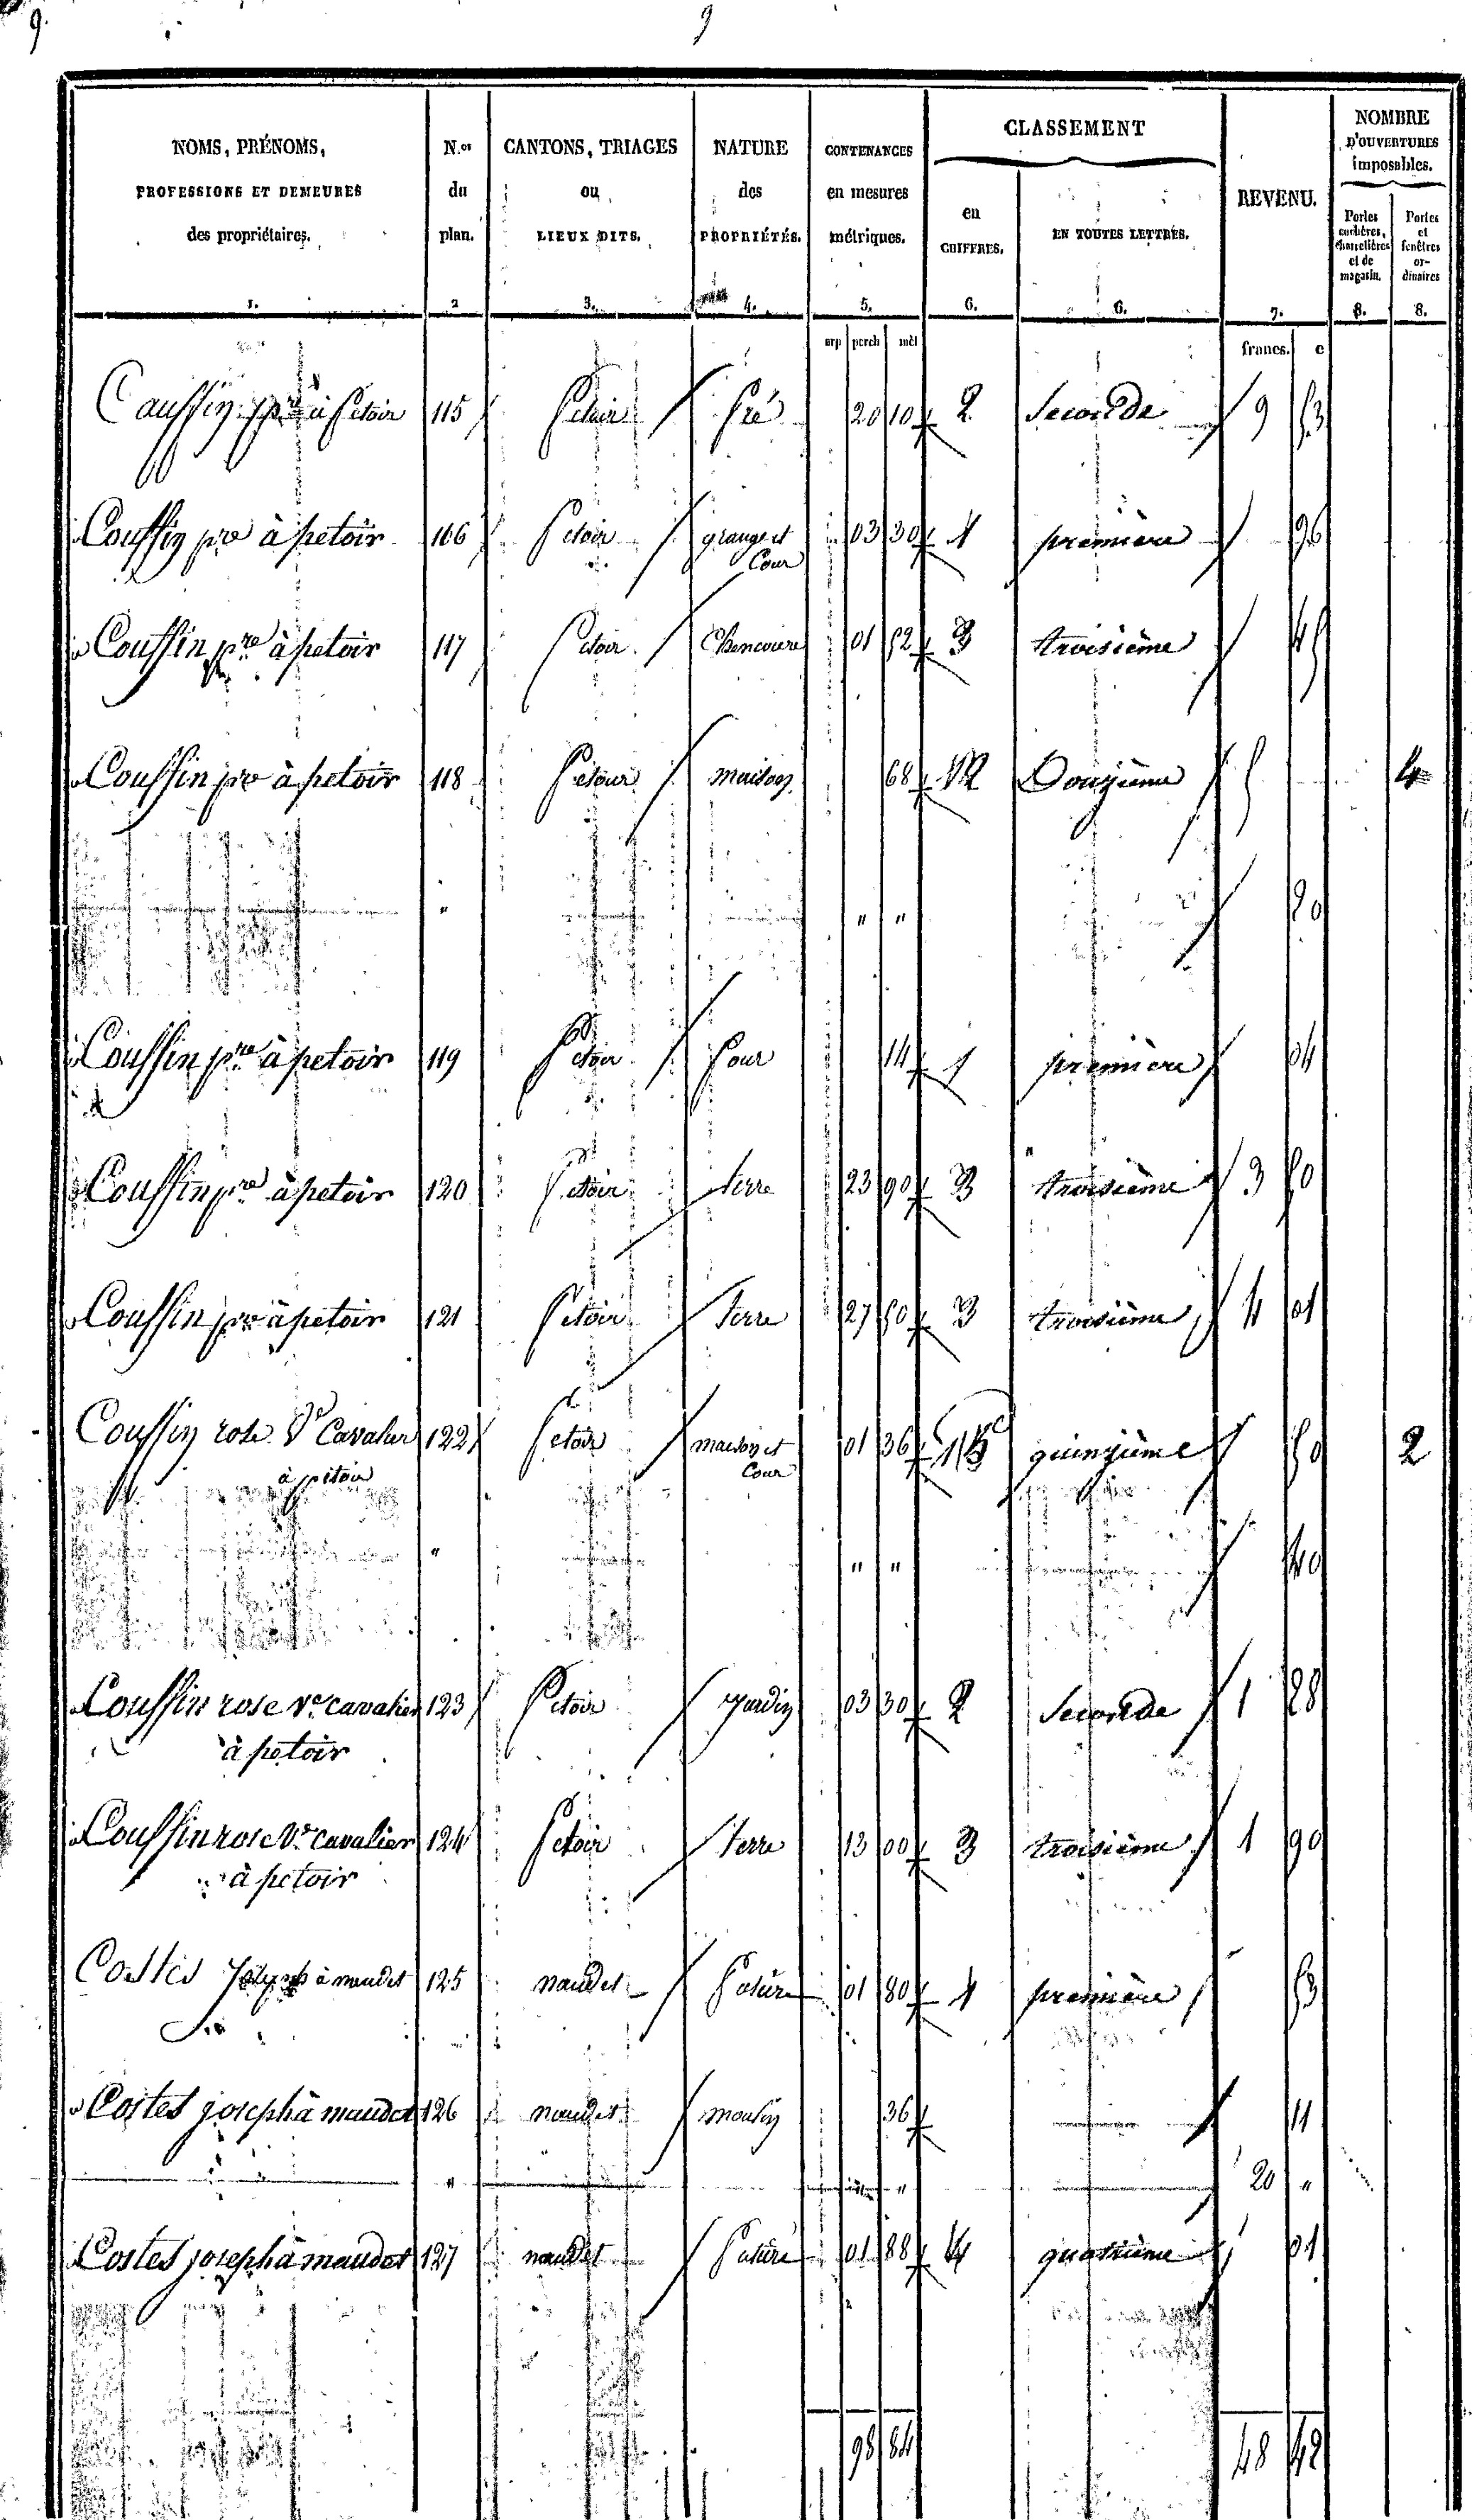 9. 9
NOMS, PRÉNOMS, PROFESSIONS ET DEMEURES des propriétaires. 1.
N.os du plan. 2
CANTONS, TRIAGES ou LIEUX DITS. 3.
NATURE des PROPRIÉTÉS. 4.
CONTENANCES en mesures métriques. 5.
CLASSEMENT
en CHIFFRES. 6.
EN TOUTES LETTRES. 6.
REVENU. 7.
NOMBRE D'OUVERTURES imposables.
Portes cochères, charretières et de magasin. 8.
Portes et fenêtres ordinaires 8.
arp perch mèl francs. c
Caussin pre à petoir 115 Petoir Pré 20 10 2 Seconde 9 53
Coussin pre à petoir 116 Petoir grange et Cour 03 30 1 première 96
Coussin pre à petoir 117 Petoir Cheneviere 01 52 3 troisième 45
Coussin pre à petoir 118 Petoir maison 68 12 Douzième 5 4
" " " 20
Coussin pre à petoir 119 Petoir four 14 1 première 04
Coussin pre à petoir 120 Petoir terre 23 90 3 troisième 3 50
Coussin pre à petoir 121 Petoir terre 27 50 3 troisième 4 01
Coussin rose Ve Cavalier 122 Petoir maison et Cour 01 36 15 quinzième 50 2
à petoir
" " " 40
Coussin rose Ve cavalier 123 Petoir Jardin 03 30 2 Seconde 1 28
à petoir
Coussin rose Ve cavalier 124 Petoir terre 13 00 3 troisième 1 90
à petoir
Costes Joseph à naudet 125 naudet Pature 01 80 1 première 53
Costes joseph à naudet 126 naudet moulin 36 11
" " 20 "
Costes joseph à naudet 127 naudet Pature 01 88 4 quatrième 01
98 84 48 42